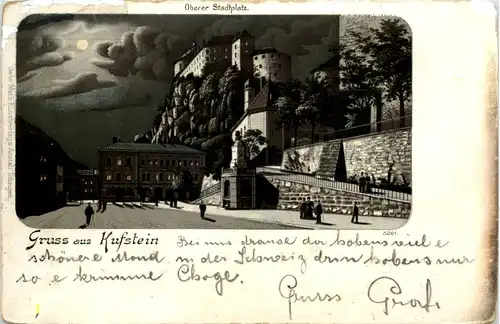 Oberer Stadtplatz.
Gruss aus Kufstein Bei uns drause da habens viel e
schönere Mond, in der Schweiz dren habens nur
so e krumme
Gruss Graf.